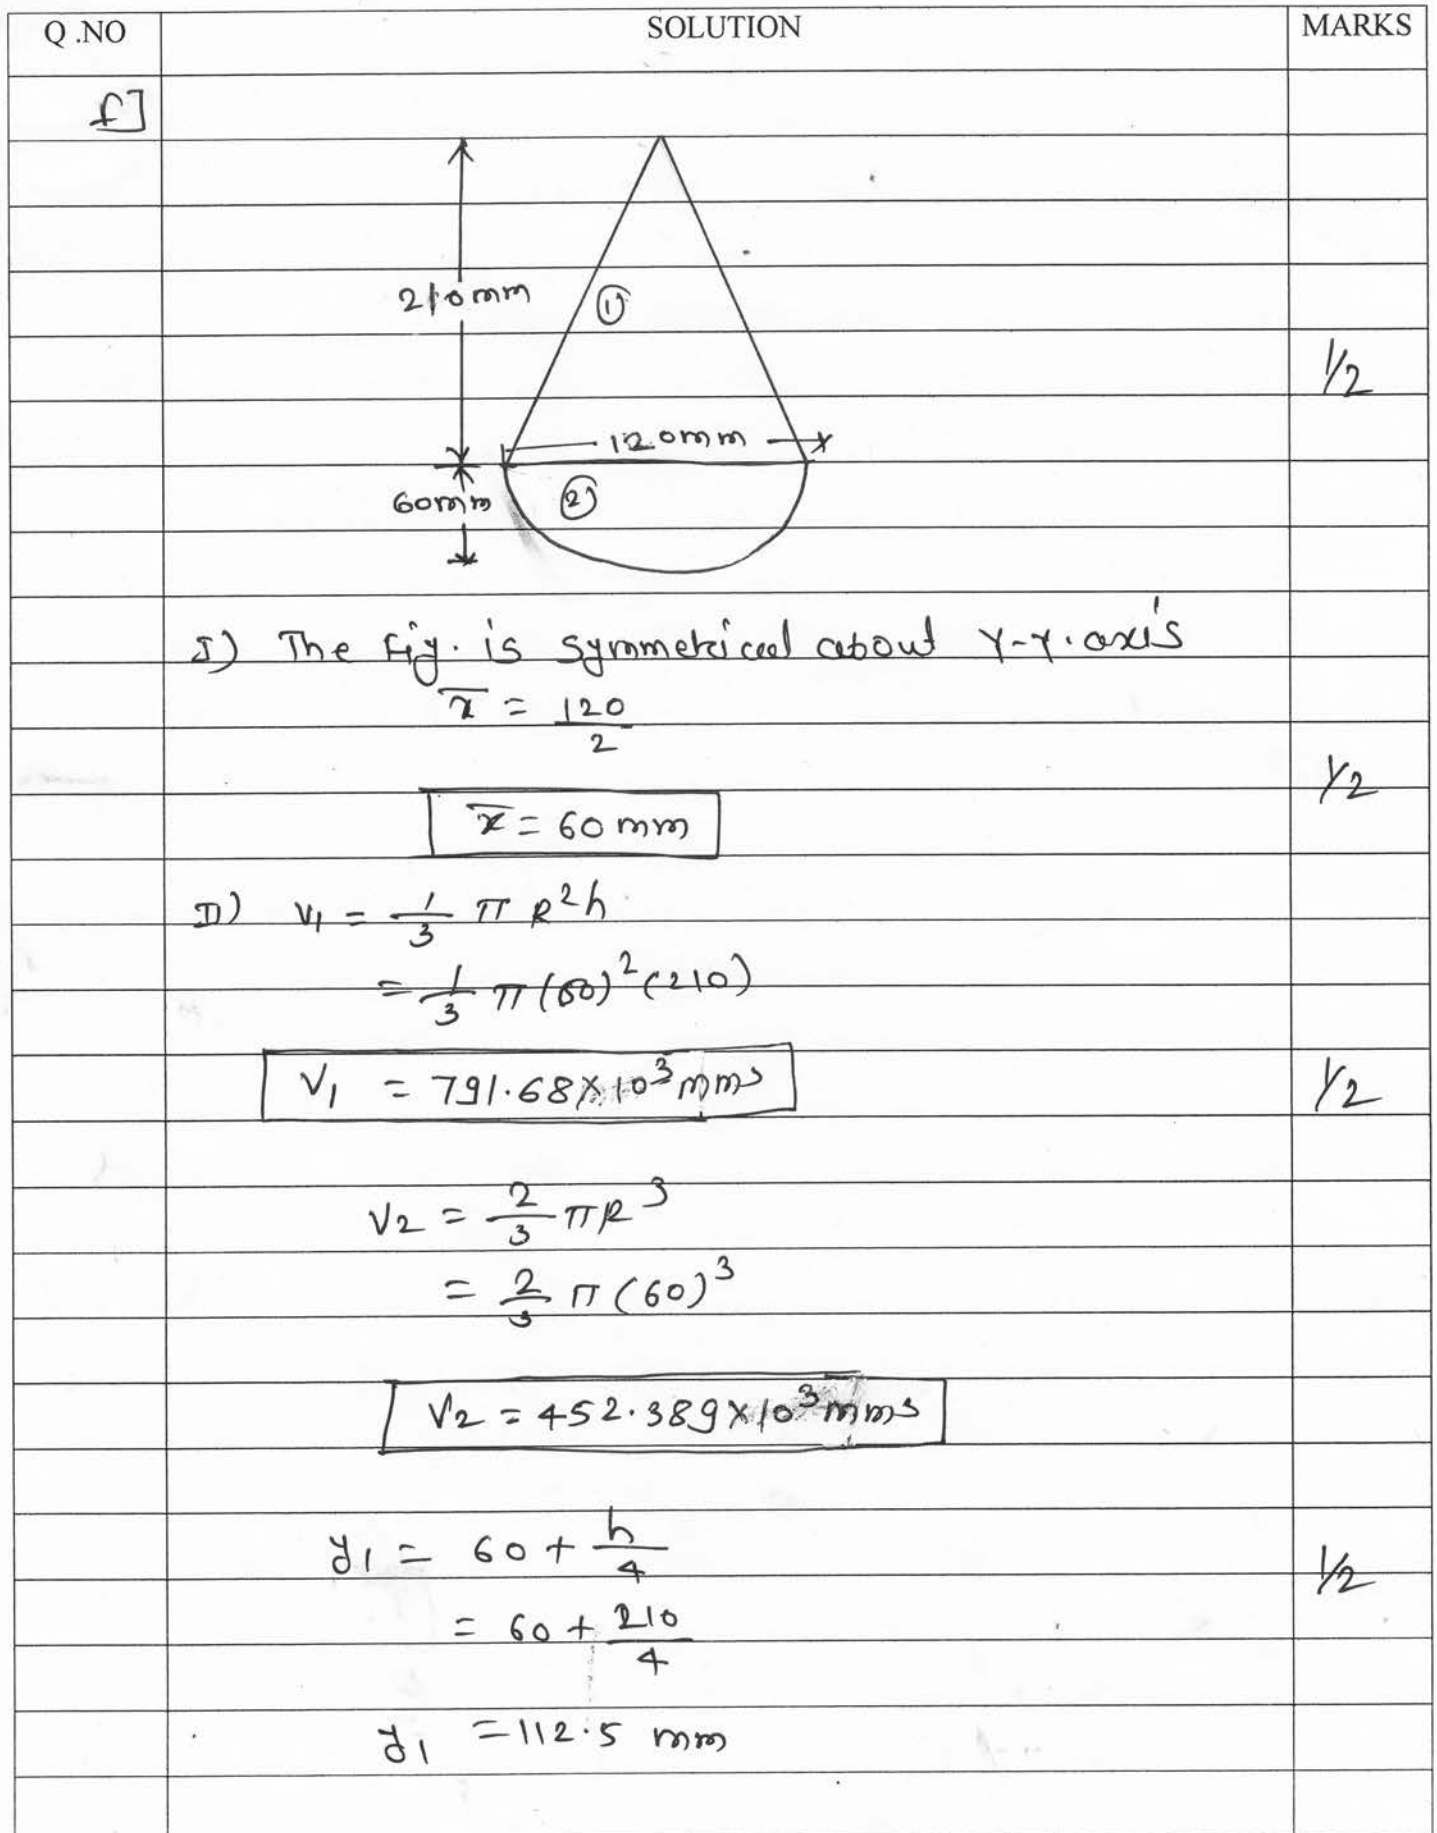 Q .NO SOLUTION MARKS
f]
210mm
①
1/2
120mm
60mm
②
I) The fig. is symmetrical about Y-Y. axis
x̄ = 120/2
1/2
x̄ = 60 mm
II) V1 = 1/3 π R²h
= 1/3 π (60)² (210)
V1 = 791.68×10³ mm³
1/2
V2 = 2/3 πR³
= 2/3 π (60)³
V2 = 452.389×10³ mm³
y1 = 60 + h/4
1/2
= 60 + 210/4
y1 = 112.5 mm